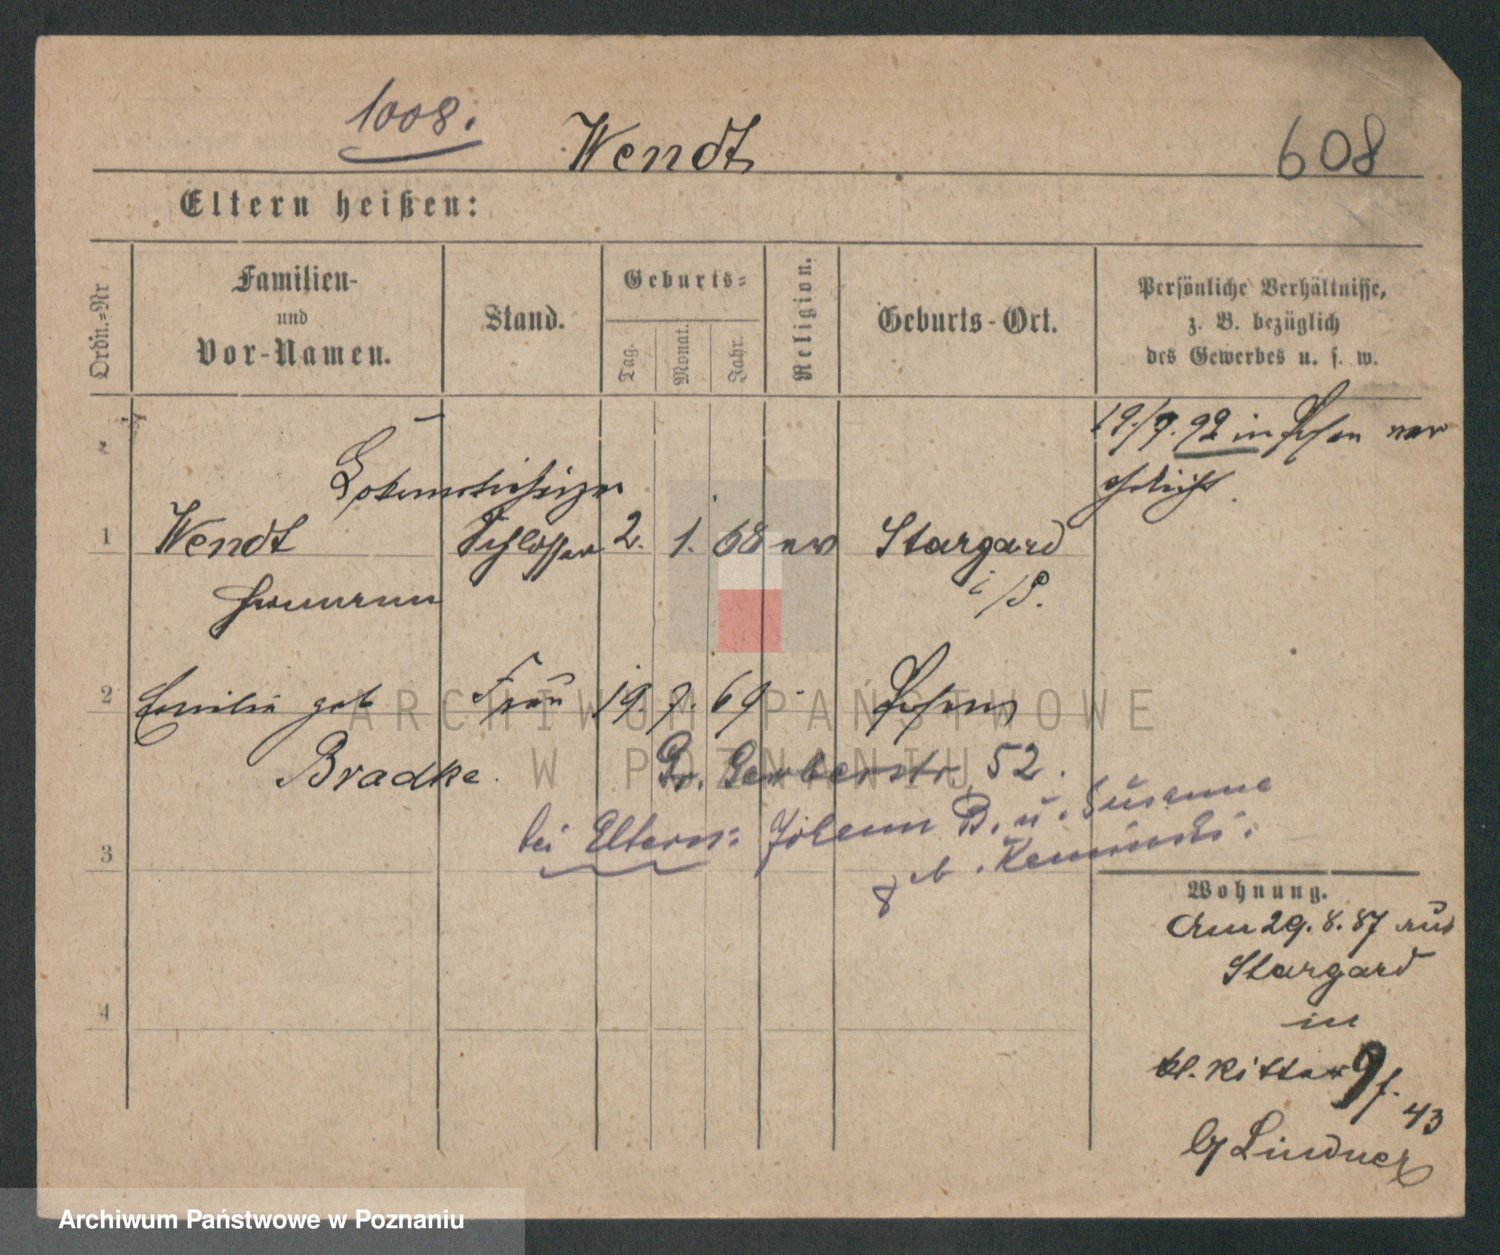 1008.
Wendt
608
Eltern heißen:
Ordin.-Nr
Familien-
und
Vor-Namen.
Stand.
Geburts-
Tag.
Monat.
Jahr.
Religion.
Geburts-Ort.
Persönliche Verhältnisse,
z. B. bezüglich
des Gewerbes u. s. w.
19./9. 92 in Posen ver
ehelicht.
Lokomotivheizer
1 Wendt Schlosser 2. 1. 68 ev Stargard
Hermann i/P.
2 Emilie geb Frau 19. 7. 69 Posen
Bradke.
Gr. Gerberstr. 52.
bei Eltern: Johann B. u. Susanna
geb.
3
Wohnung.
Am 29. 8. 87 aus
Stargard
in
kl. Ritter 9 f.
43
b/ Lindner
4
ARCHIWUM PAŃSTWOWE
W POZNANIU
Archiwum Państwowe w Poznaniu